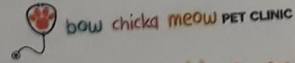 bow chicka meow PET CLINIC